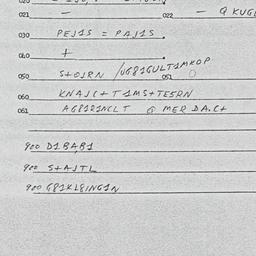 021 — 022 — Q KUGL
030 PEJ1S = PAJ1S
040 +
050 S+OJRN /UG81GULT1MKOP
051 0
060 KNAJC+T1MS+TESRN
061 AG81R1NCLT @ MER DA.C+
900 D1BAB1
900 S+AJTL
900 G81KL8ING1N